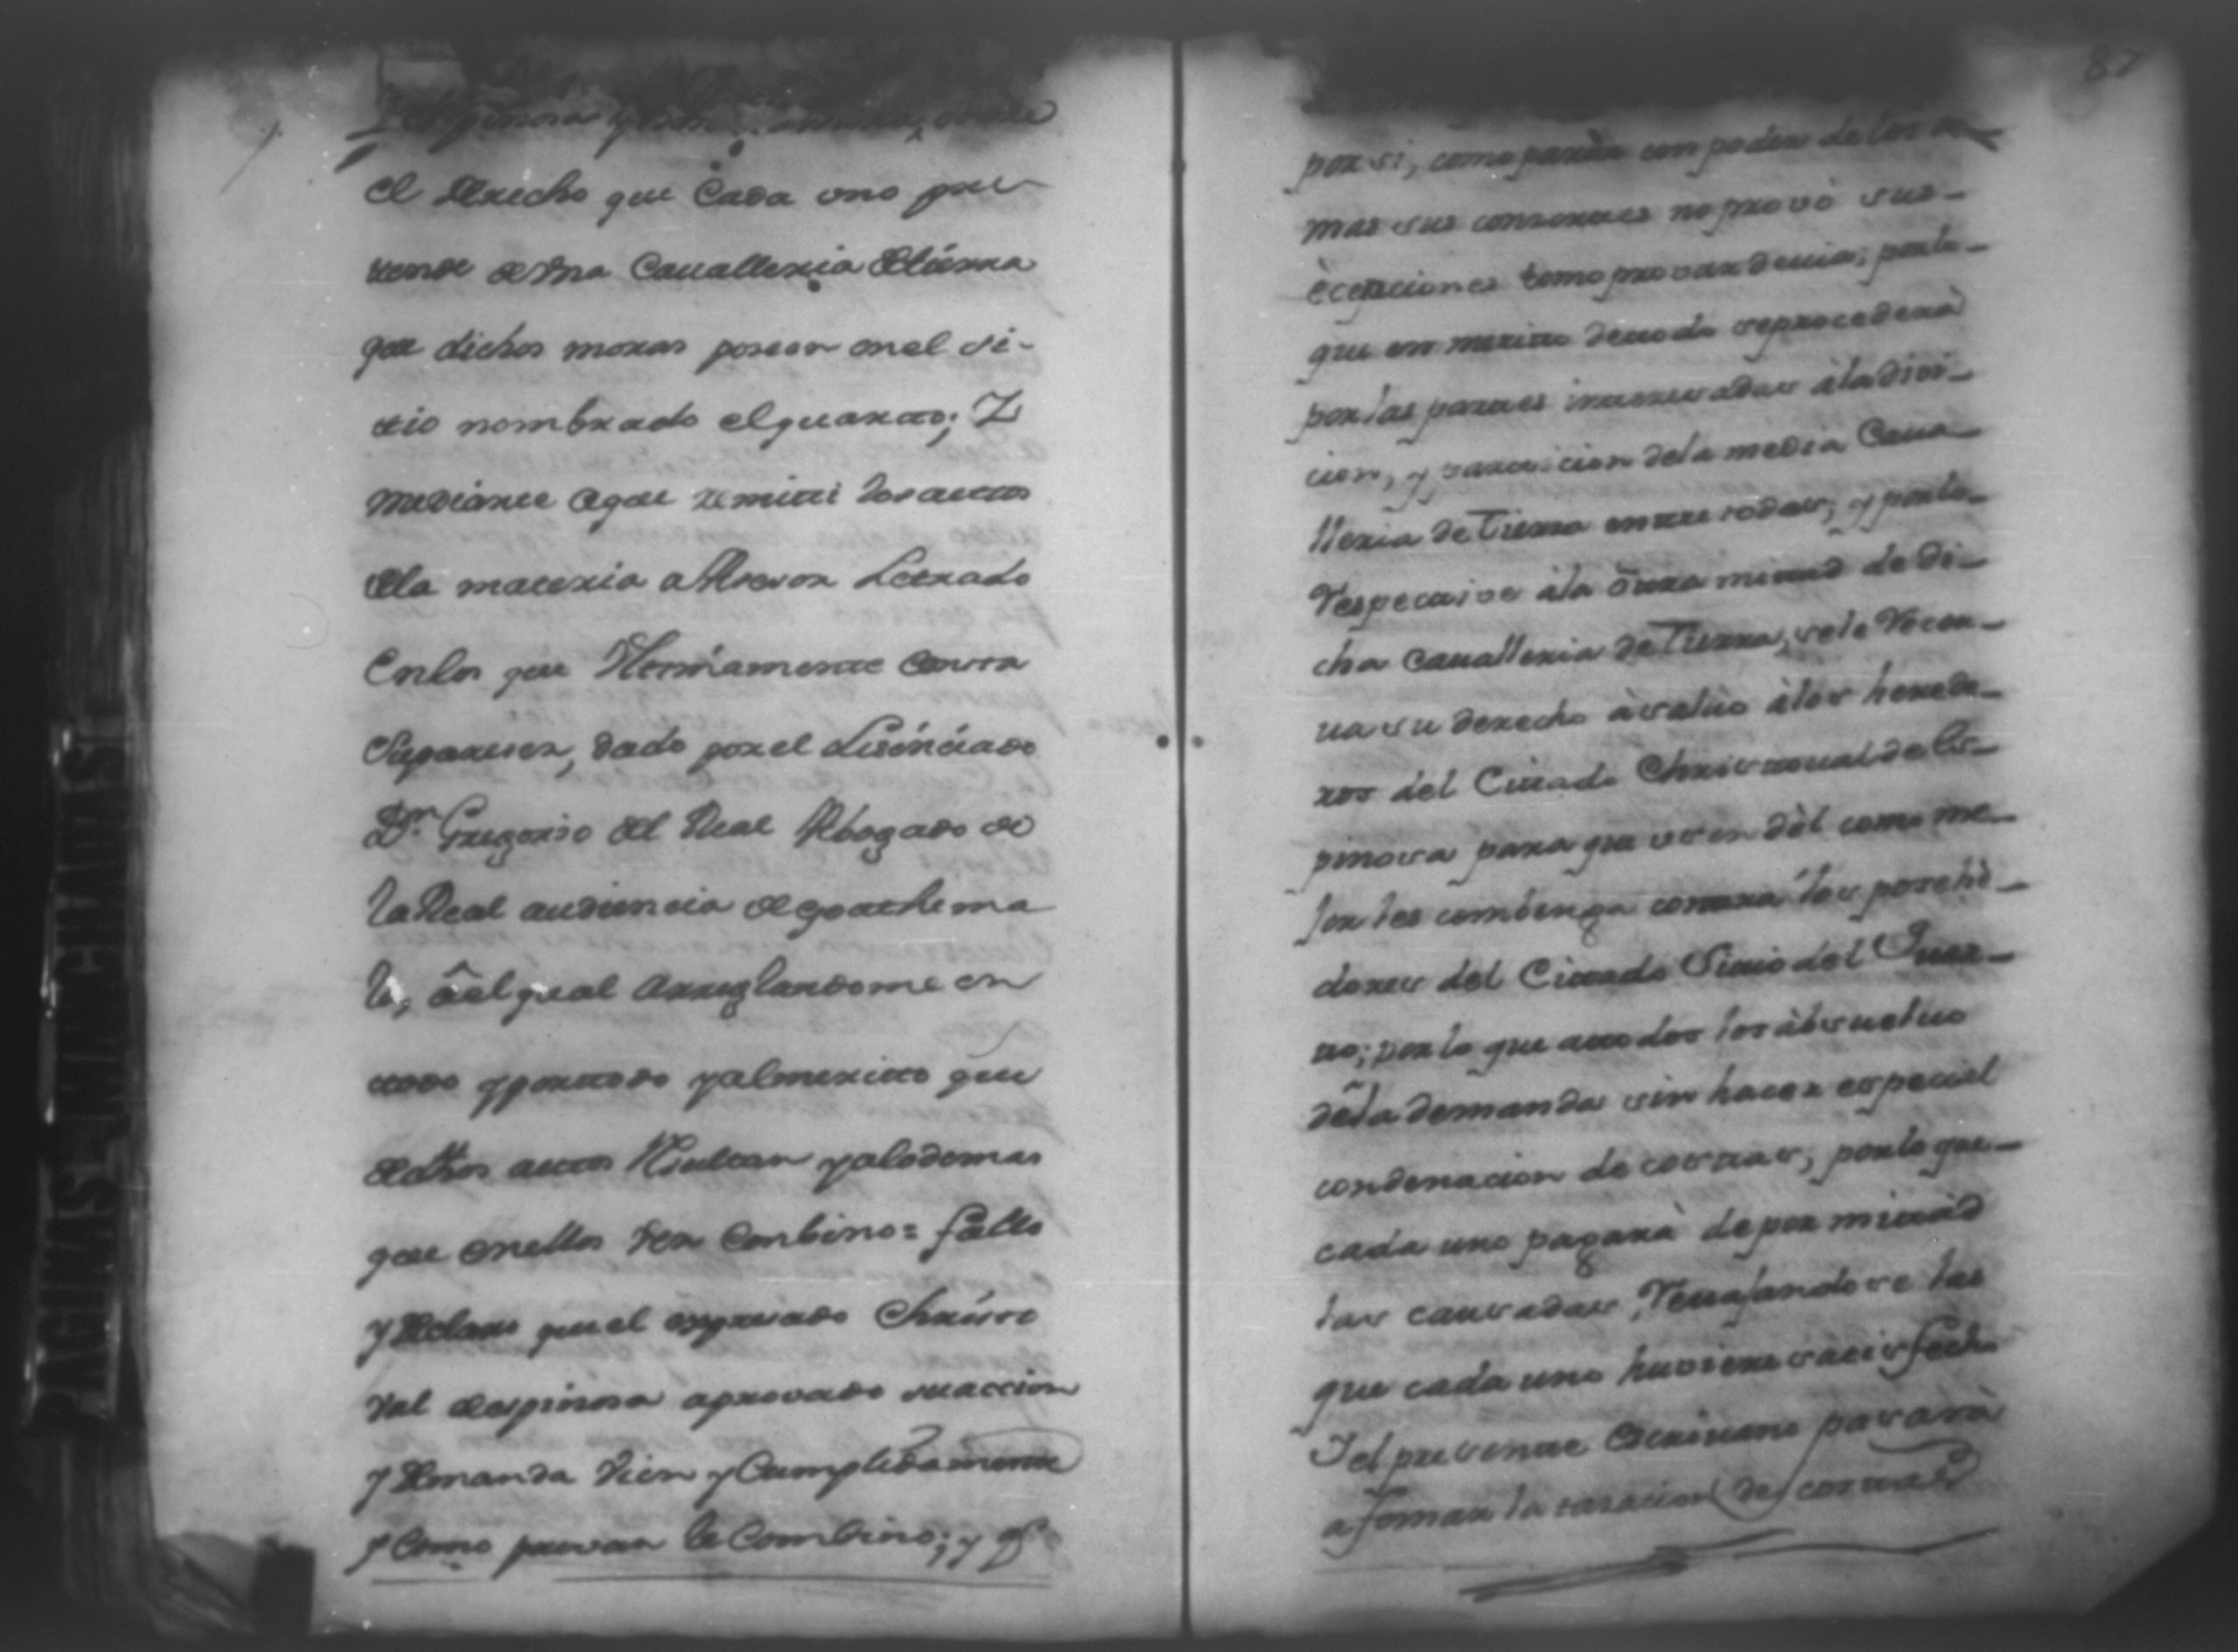 el derecho que Cada vno pre
tende de vna Cauallexia de tierra
que dichos moxas poseen en el si-
tio nombrado el guarato; Y
mediante a que remiti los auttos
de la matexia a Assesor Letrado
en los que Vltimamente Consta
Su pareser, dado por el Lisénciado
Dn. Gregorio del Real Abogado de
la Real audiencia de goathema
la, â el qual arreglandome en
ttodo y por ttodo y al meritto que
de dhos auttos Resultan y a lo demas
que en ellos ver Conbino = fallo
y declaro que el expresado Christo
val de espinosa a provado su accion
y demanda vien y Cumplidamente
y Como provar le Combino; y qe
87
por si, como parte con poder de los
mas sus consortes no provó sus-
ècepciones como provar devia; por lo-
que en merito de todo se procederá
por las partes interesadas à la divi-
cion, y particion de la media Caua-
lleria de Tierra entre todas; y por lo-
respectivo à la ôtra mitad de di-
cha Caualleria de Tierra, se le reser-
ua su derecho à salvo à los herede-
ros del Citado Christoual de Es-
pinosa para que usen dèl como me-
jor les combenga contra los posehè-
dores del Citado Sitio del Guar-
to; por lo que a todos los àbsuelvo
de la demanda sin hacer especial
condenacion de costas; por lo que-
cada uno pagarà de por mitad
las causadas, revajandose las
que cada uno huviere satisfecho
Y el presente Escrivano pasarà
a formar la tasacion de costas